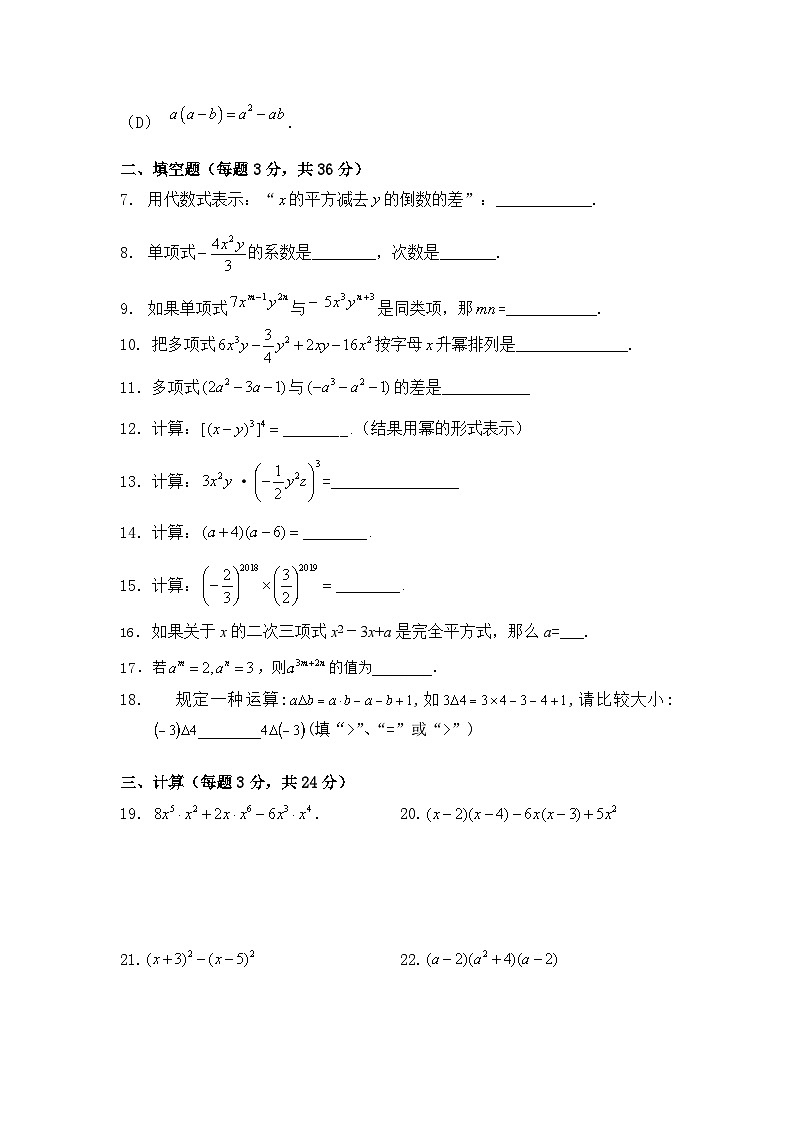 (D) a(a−b)=a²−ab.
二、填空题（每题3分，共36分）
7. 用代数式表示：“x的平方减去y的倒数的差”：____________.
8. 单项式−4x²y/3的系数是________，次数是_______.
9. 如果单项式7x^{m−1}y^{2n}与−5x³y^{n+3}是同类项，那mn=___________.
10. 把多项式6x³y−3/4y²+2xy−16x²按字母x升幂排列是______________.
11. 多项式(2a²−3a−1)与(−a³−a²−1)的差是___________
12. 计算：[(x−y)³]⁴=_________.（结果用幂的形式表示）
13. 计算：3x²y·(−1/2y²z)³=________________
14. 计算：(a+4)(a−6)=________.
15. 计算：(−2/3)^{2018}×(3/2)^{2019}=________.
16. 如果关于x的二次三项式x²−3x+a是完全平方式，那么a=___.
17. 若a^m=2,a^n=3，则a^{3m+2n}的值为________.
18. 规定一种运算:aΔb=a·b−a−b+1,如3Δ4=3×4−3−4+1,请比较大小:
(−3)Δ4________4Δ(−3)(填“>”、“=”或“>”)
三、计算（每题3分，共24分）
19. 8x⁵·x²+2x·x⁶−6x³·x⁴. 20. (x−2)(x−4)−6x(x−3)+5x²
21. (x+3)²−(x−5)² 22. (a−2)(a²+4)(a−2)